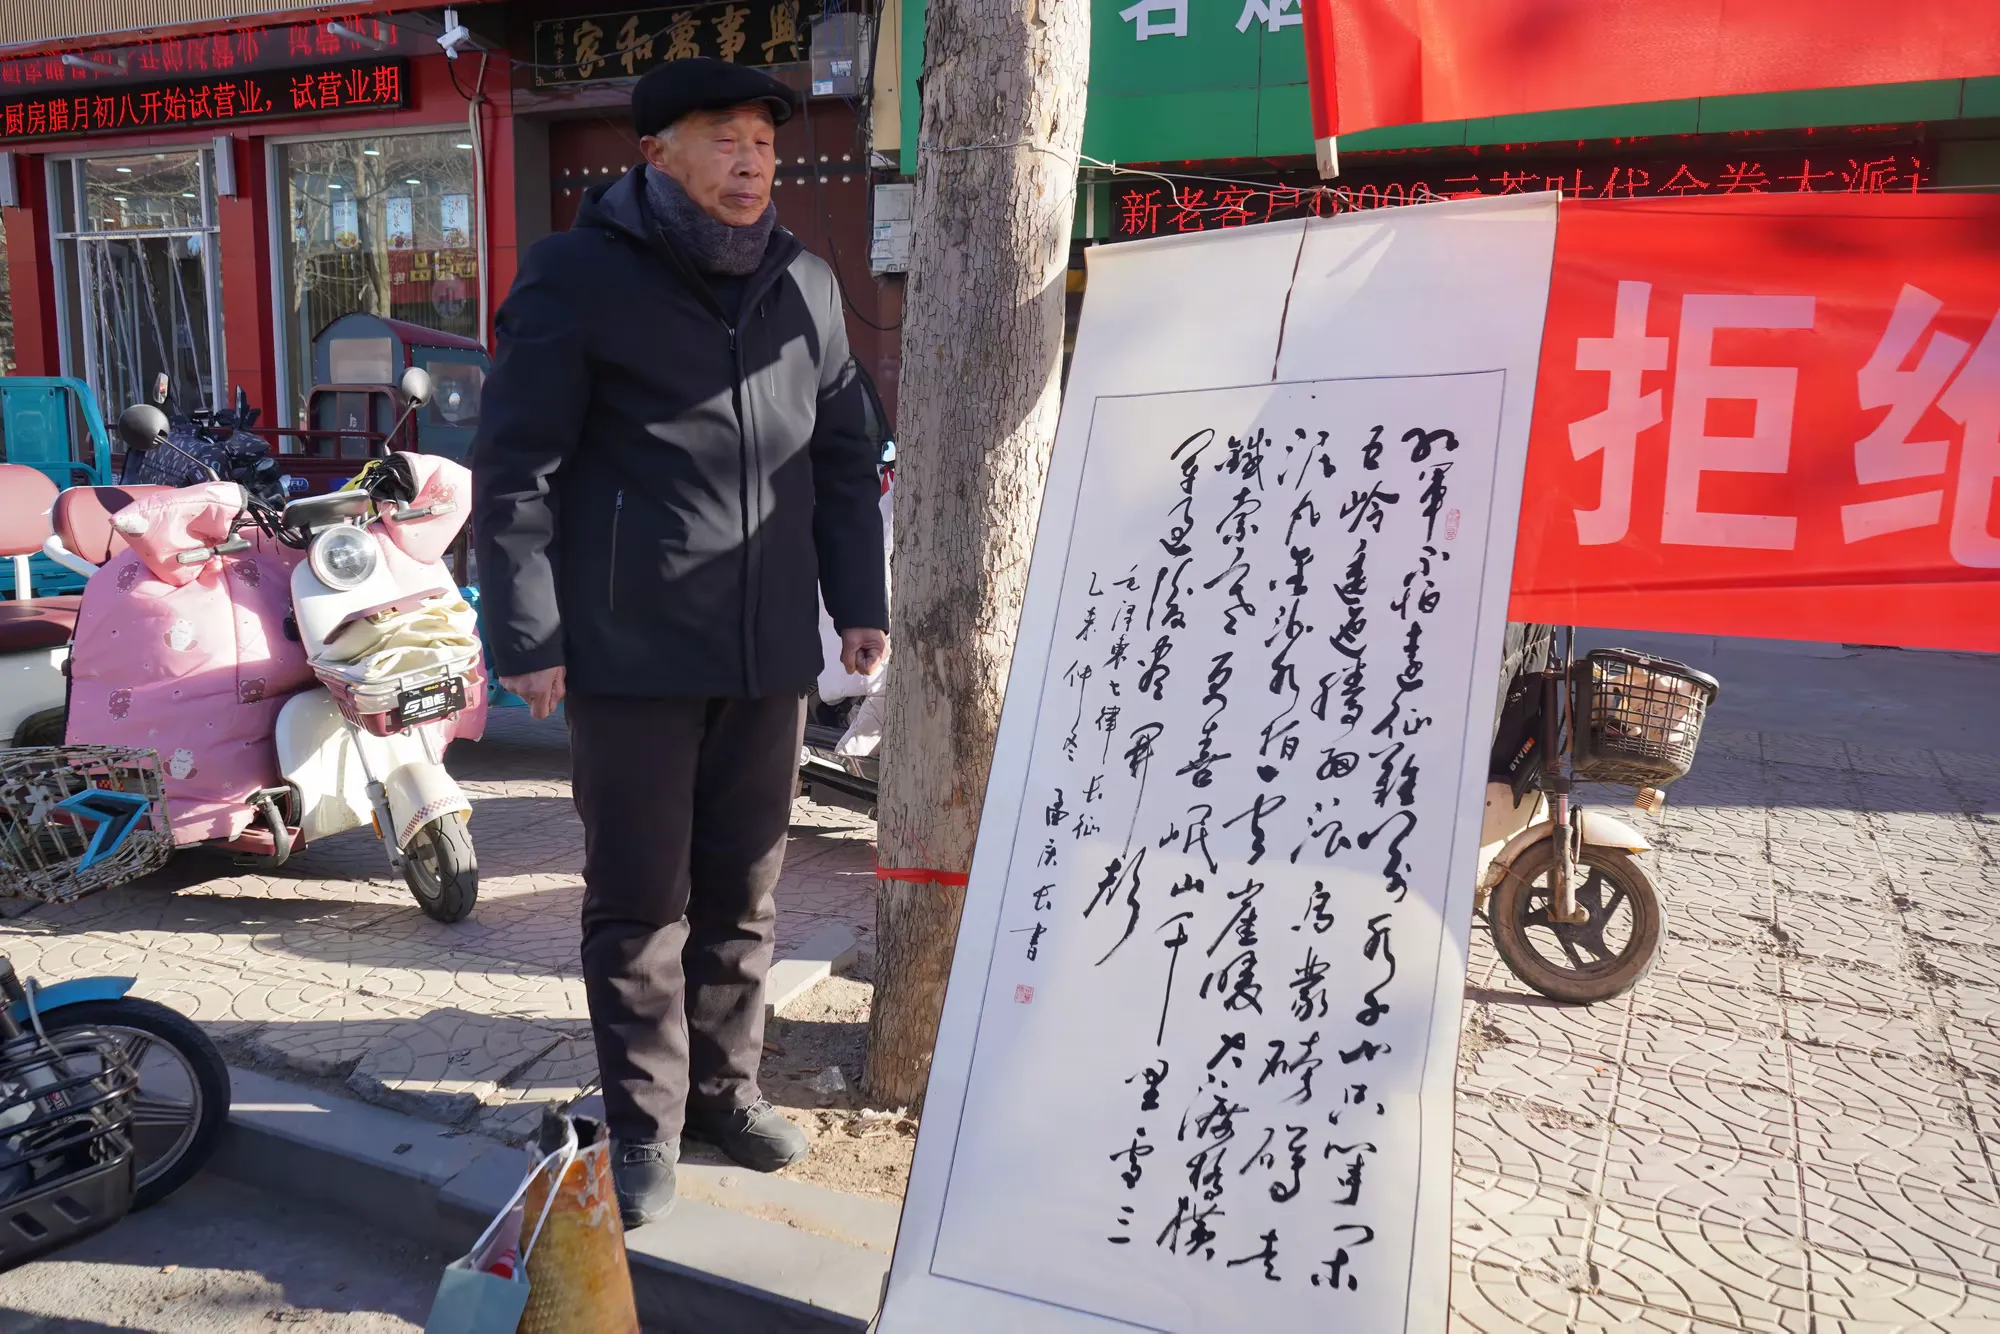 家和萬事興
厨房腊月初八开始试营业，试营业期
名烟
新老客户10000元茶时代金券大派送
拒绝
红軍不怕遠征難万水千山只等闲
五岭逶迤腾细浪乌蒙磅礴走
泥丸金沙水拍云崖暖大渡橋横
鐵索寒更喜岷山千里雪三
军过後尽開颜
毛泽东七律长征
仲冬
庆长書
国彪